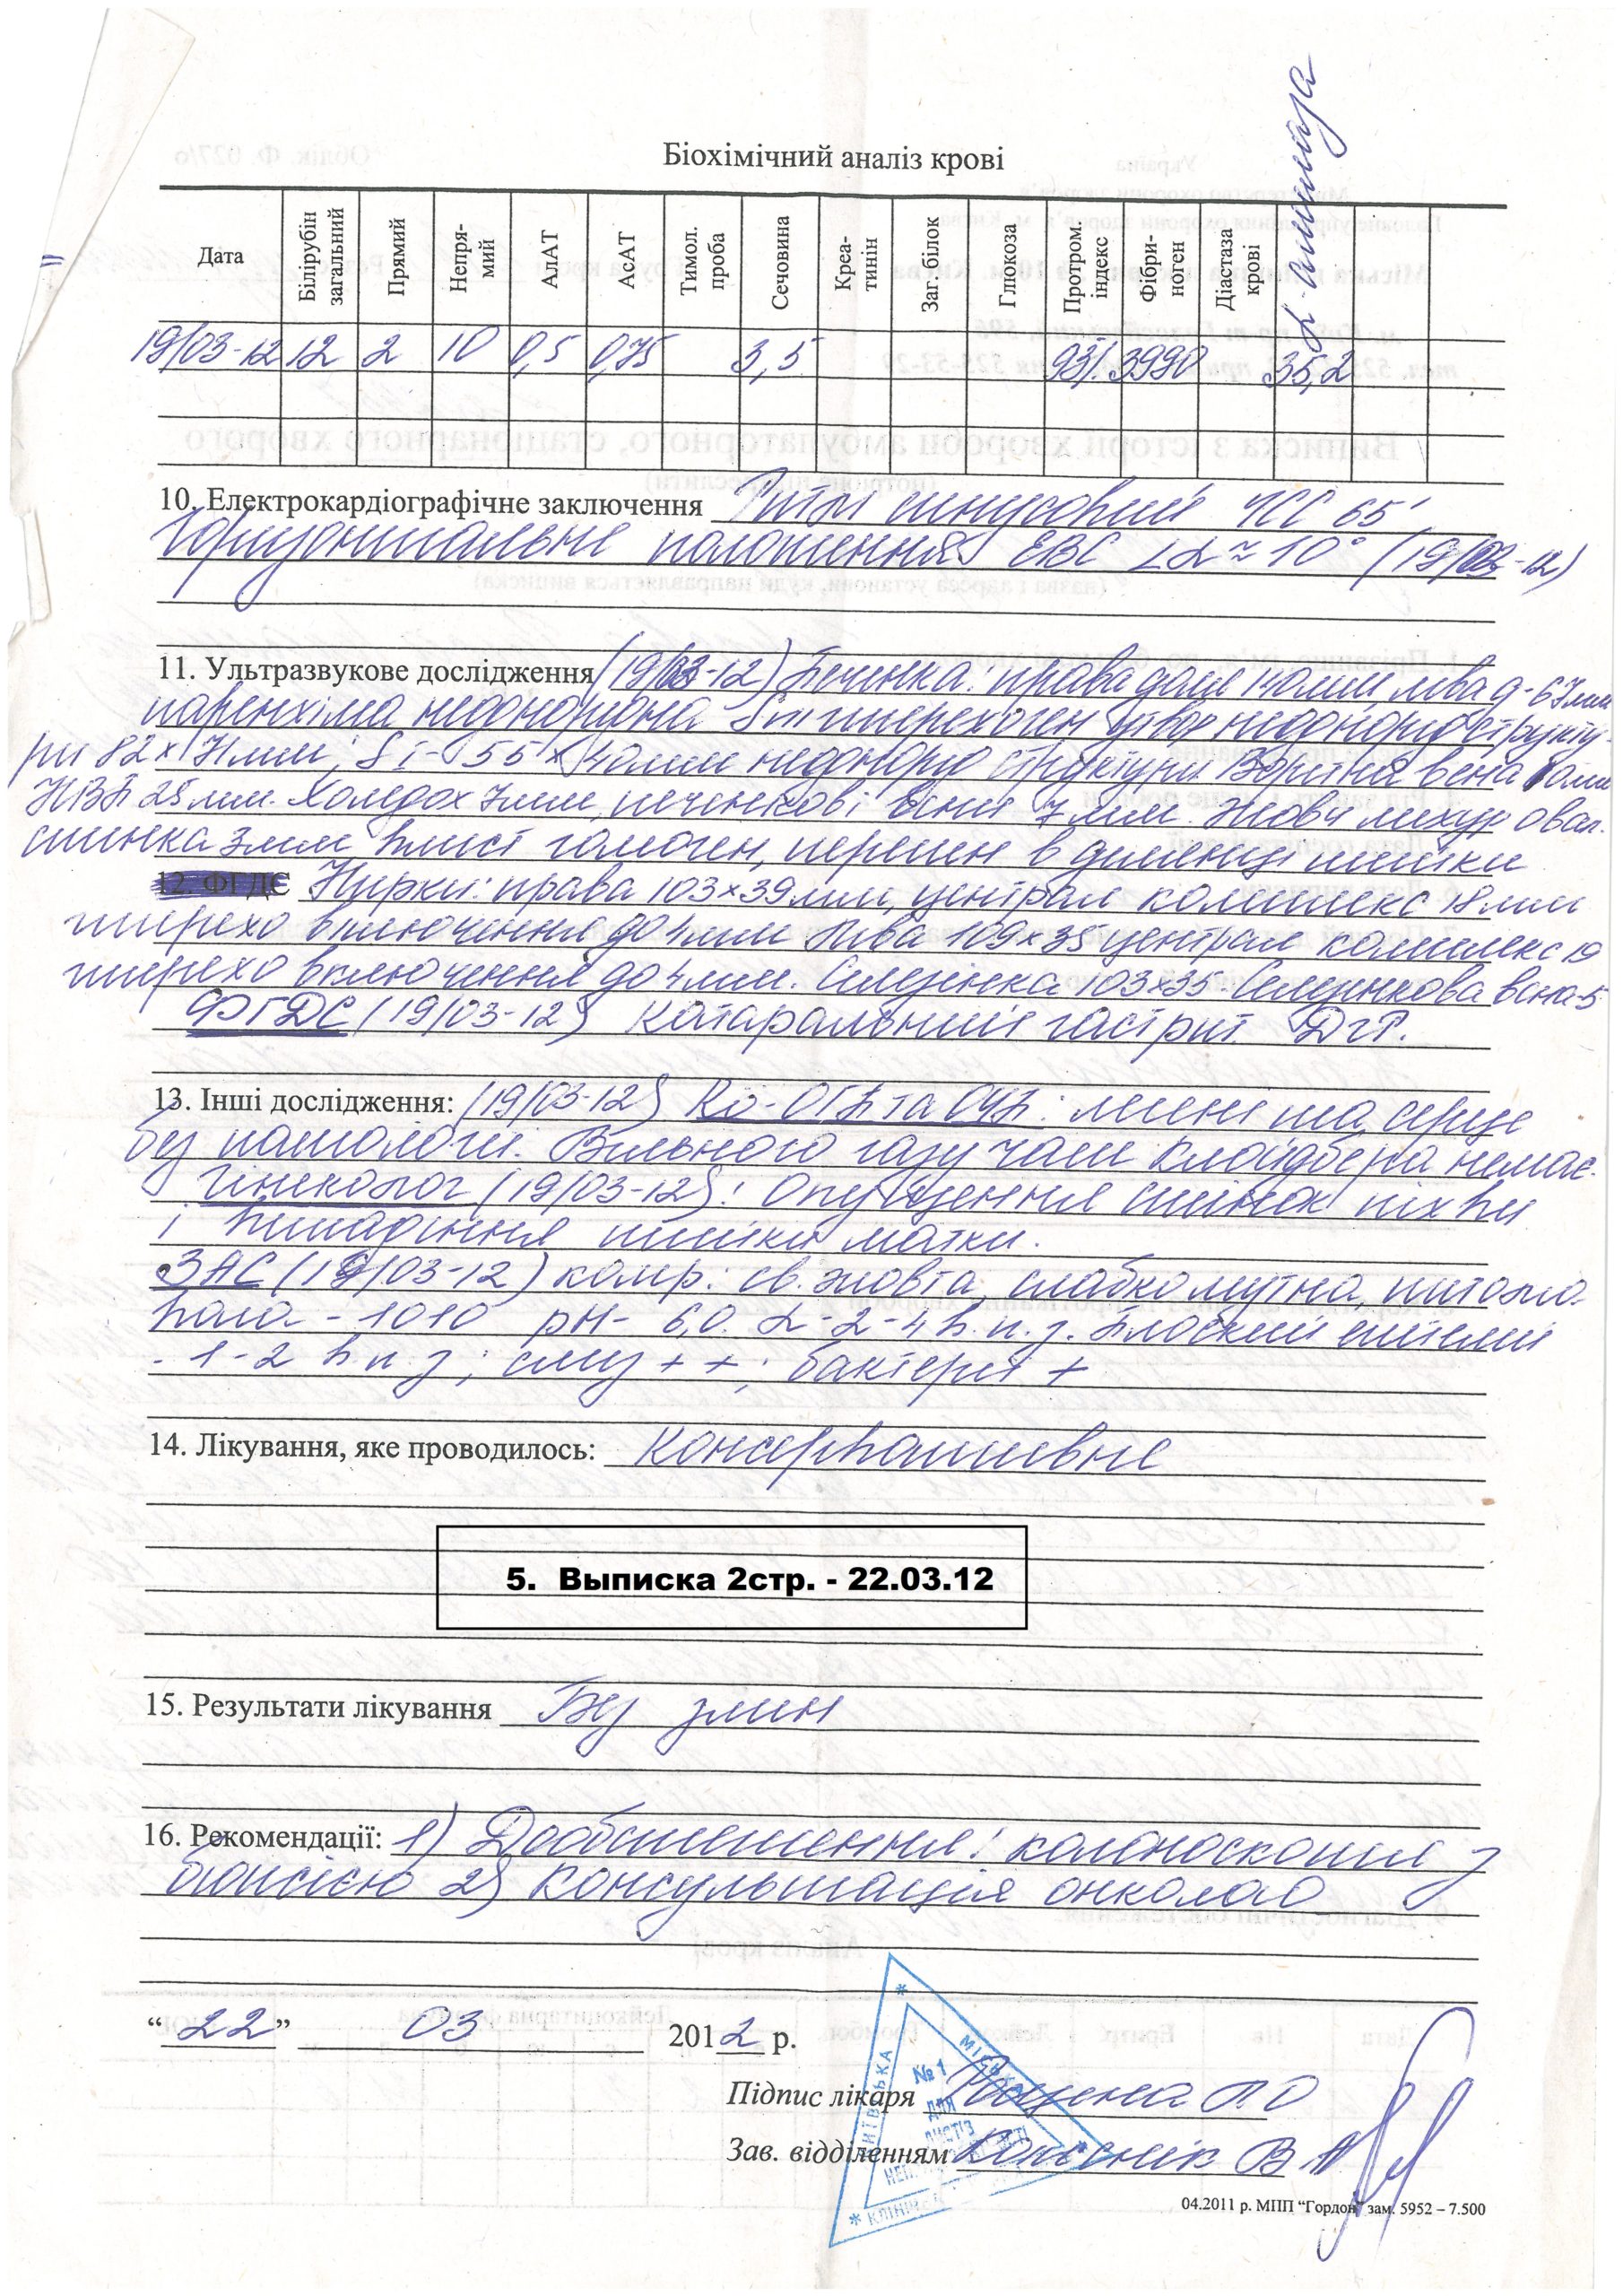 Біохімічний аналіз крові
Дата Білірубін загальний Прямий Непря-мий АлАТ АсАТ Тимол. проба Сечовина Креа-тинін Заг. білок Глюкоза Протром. індекс Фібри-ноген Діастаза крові
19/03-12 12 2 10 0,5 0,75 3,5 93% 3990 35,2
10. Електрокардіографічне заключення Ритм синусовий ЧСС 65'
Горизонтальне положення ЕВС ∠α≈10° (19/03-12)
11. Ультразвукове дослідження (19/03-12) Печінка: права доля 140мм, ліва д-67мм
паренхіма неоднорідна гіперехоген утвор неоднорід структу-
ри 82×71мм; S I- 55×40мм неоднорід структури. Ворітна вена
НВП 25мм. Холедох 7мм, печінкові вени 7мм. Жовч міхур овал.
стінка 3мм вміст гомоген, перегин в ділянці шийки
12. ФГДС Нирки: права 103×39мм, централ комплекс 18мм
гіперехо включення до 4мм Ліва 109×35 централ комплекс 19
гіперехо включення до 4мм. Селезінка 103×35. Селезінкова вена-5
ФГДС (19/03-12) Катаральний гастрит. ДГР.
13. Інші дослідження: (19/03-12) Rö-ОГП та ОЧП: легені та серце
без патології. Вільного газу чаш Клойдбера немає.
Гінеколог (19/03-12): Опущення стінок піхви
і випадіння шийки матки.
ЗАС (19/03-12) колір: св. жовта, слабко мутна, питома
вага - 1010 рН- 6,0. L-2-4 в п.з. Плоский епітелій
- 1-2 в п.з; слиз ++; бактерії +
14. Лікування, яке проводилось: Консервативне
5. Выписка 2стр. - 22.03.12
15. Результати лікування Без змін
16. Рекомендації: 1) Дообстеження: колоноскопія з
біопсією 2) Консультація онколога
“22” 03 2012 р.
Підпис лікаря
Зав. відділенням
КИЇВСЬКА МІСЬКА КЛІНІЧ
№1
ДЛЯ
04.2011 р. МПП “Гордон” зам. 5952 – 7.500